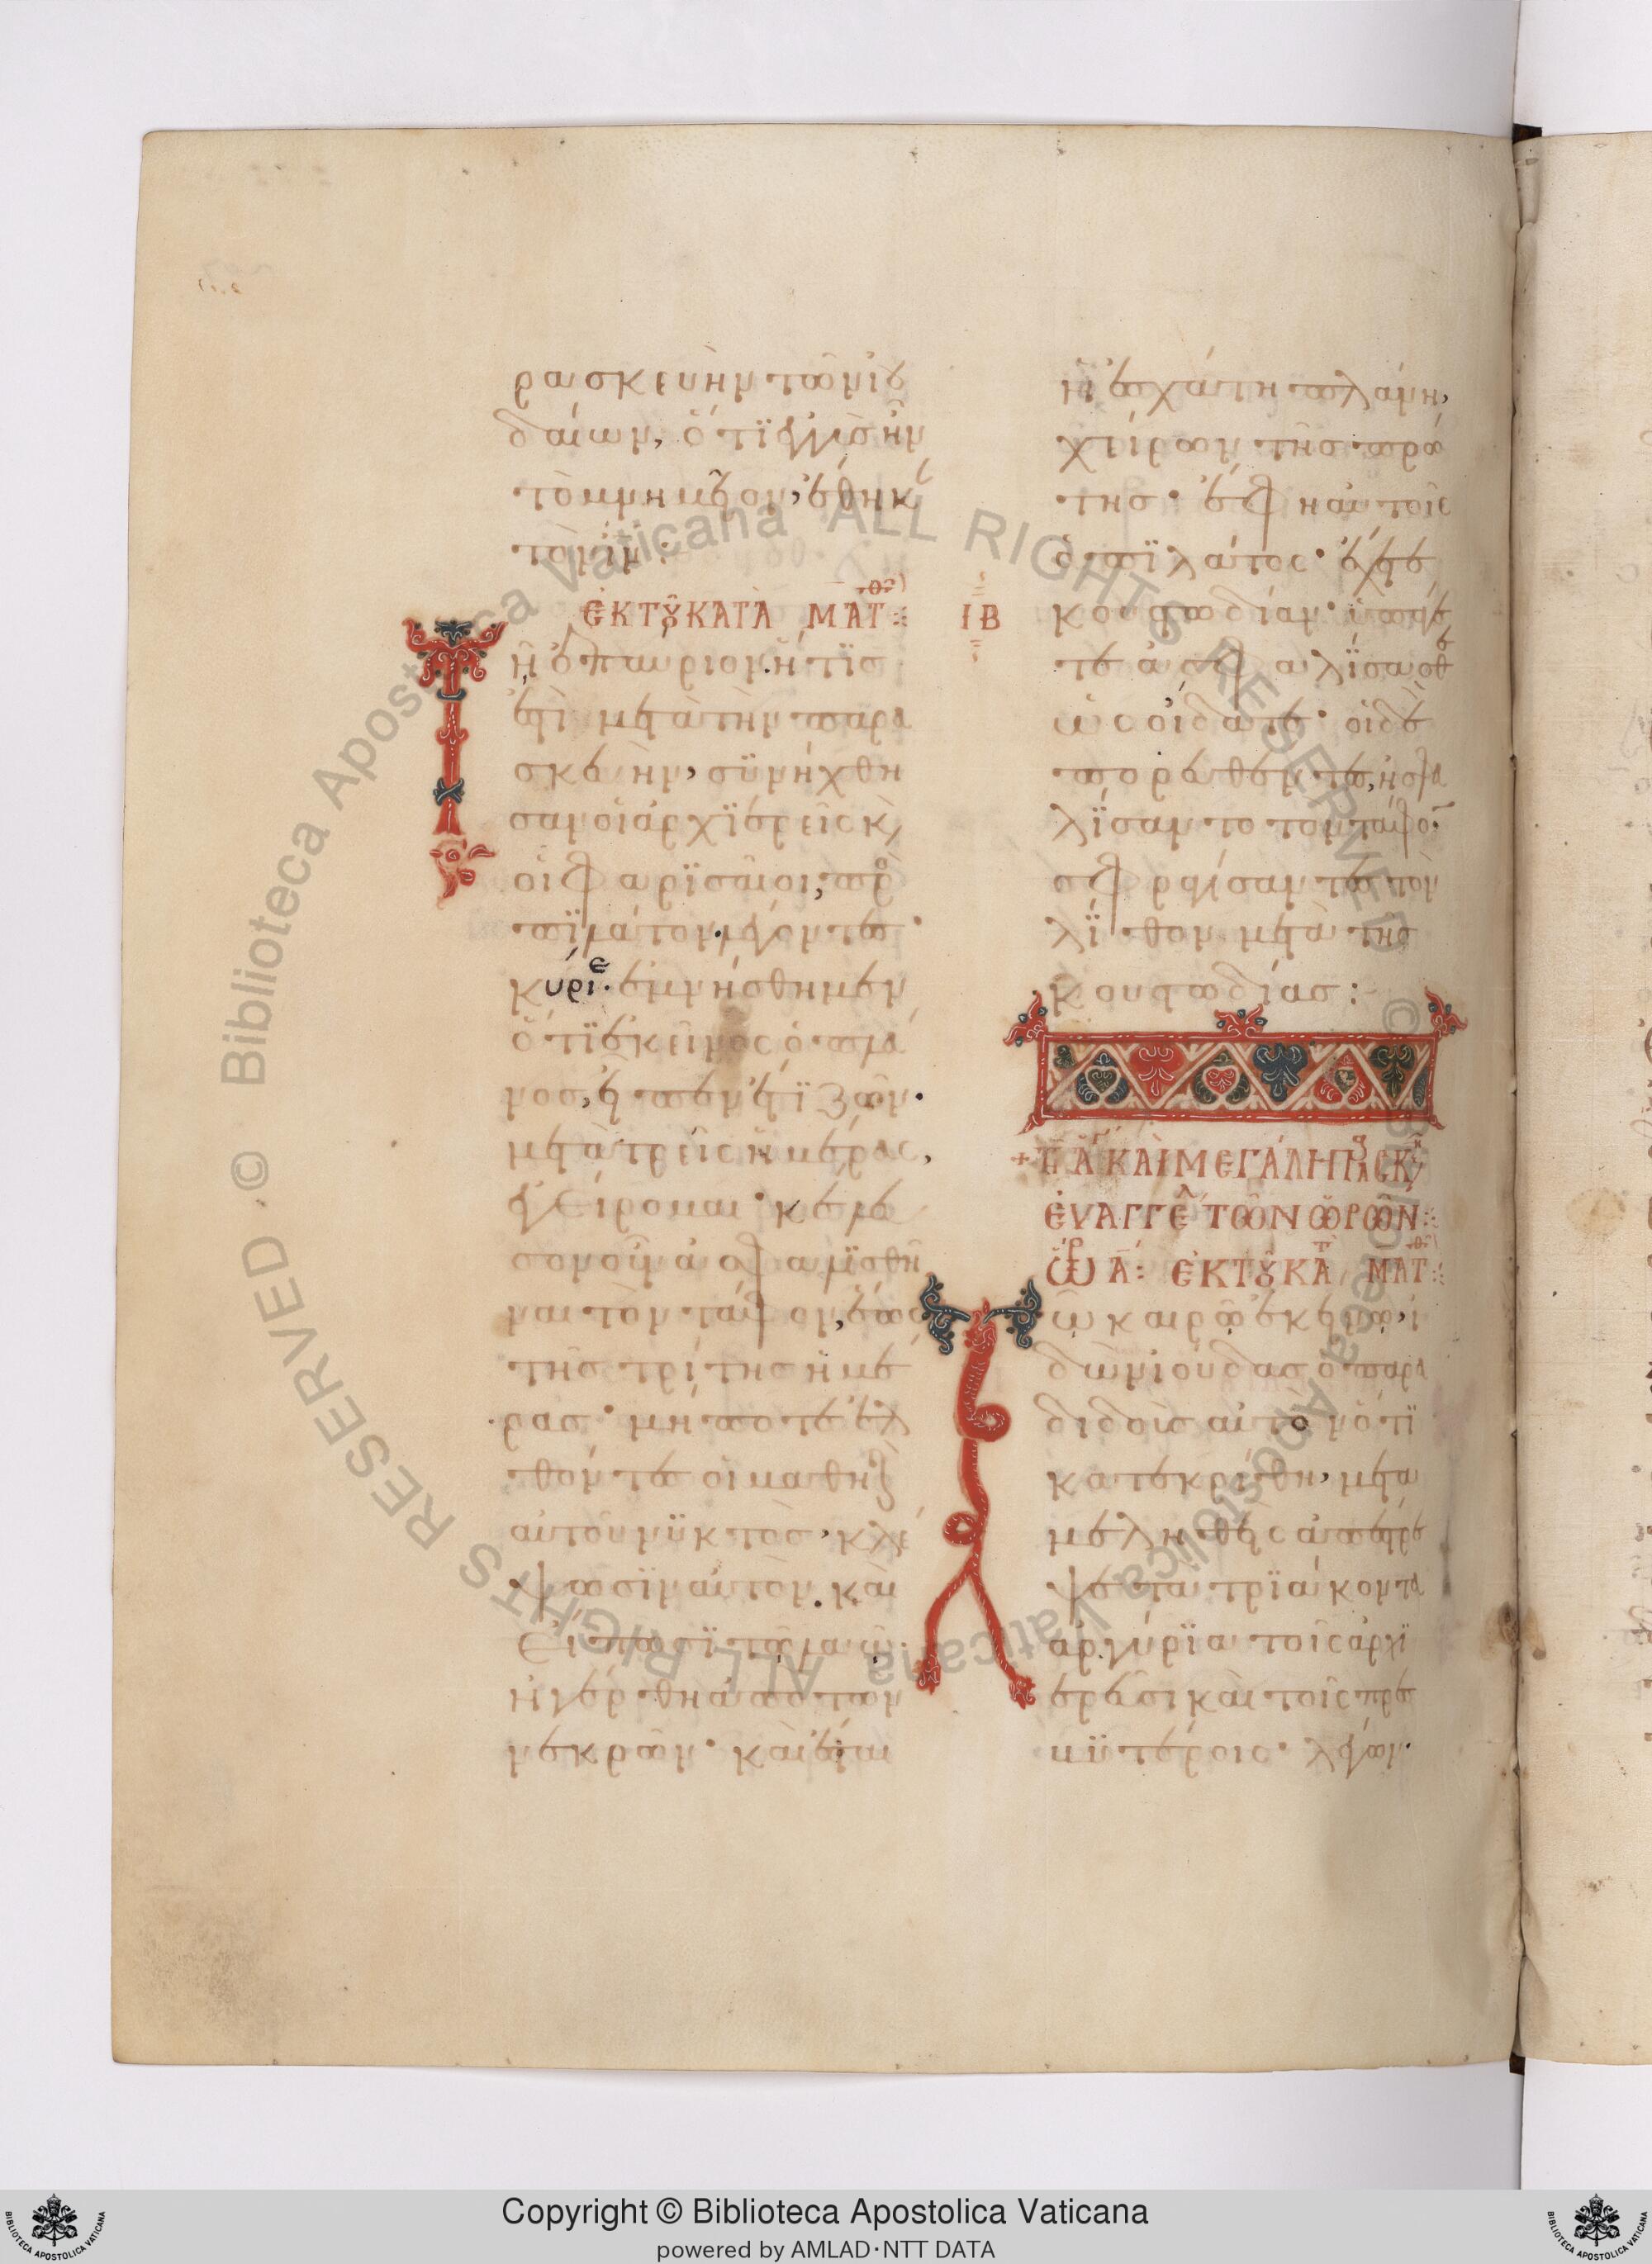 ρασκευὴν τῶν ἰου
δαίων, ὅτι ἐγγὺς ἦν
τὸ μνημεῖον, ἔθηκ
τὸν ἰν:
ἐκ τοῦ κατὰ Ματθ
ΙΒ
Τῆ ἐπαύριον, ἥτις
ἐστὶ μετὰ τὴν παρα
σκευὴν, συνήχθη
σαν οἱ ἀρχιερεῖς κ
οἱ φαρισαῖοι, πρ
πιλάτον λέγοντες·
κύριε· ἐμνήσθημεν
ὅτι ἐκεῖνος ὁ πλά
νος, εἶπεν ἔτι ζῶν·
μετὰ τρεῖς ἡμέρας,
ἐγείρομαι· κέλευ
σον οὖν ἀσφαλισθῆ
ναι τὸν τάφον, ἕως
τῆς τρίτης ἡμέ
ρας· μήποτε ἐλ
θόντες οἱ μαθηταὶ
αὐτοῦ νυκτὸς, κλέ
ψωσιν αὐτὸν, καὶ
εἴπωσι τῷ λαῷ·
ἠγέρθη ἀπὸ τῶν
νεκρῶν· καὶ ἔσται
ἡ ἐσχάτη πλάνη,
χείρων τῆς πρώ
της· ἔφη αὐτοῖς
ὁ πιλάτος· ἔχετε
κουστωδίαν· ὑπάγε
τε ἀσφαλίσασθε
ὡς οἴδατε· οἱ δὲ
πορευθέντες, ἠσφα
λίσαντο τὸν τάφο
σφραγίσαντες τὸν
λίθον μετὰ τῆς
κουστωδίας:
+ Τῆ ἁγ καὶ μεγάλη παρασκ
ἐυαγγελ τῶν ὡρῶν
ὥρ Α: ἐκ τοῦ κατ Ματθ
Τῶ καιρῶ ἐκείνω, ἰ
δὼν ἰούδας ὁ παρα
διδοὺς αὐτὸν ὅτι
κατεκρίθη, μετα
μεληθεὶς ἀπέστρε
ψε τὰ τριάκοντα
ἀργύρια τοῖς ἀρχι
ερεῦσι καὶ τοῖς πρεσ
βυτέροις· λέγων·
© Biblioteca Apostolica Vaticana ALL RIGHTS RESERVED
© Biblioteca Apostolica Vaticana ALL RIGHTS RESERVED
Copyright © Biblioteca Apostolica Vaticana
powered by AMLAD·NTT DATA
BIBLIOTECA APOSTOLICA VATICANA
BIBLIOTECA APOSTOLICA VATICANA